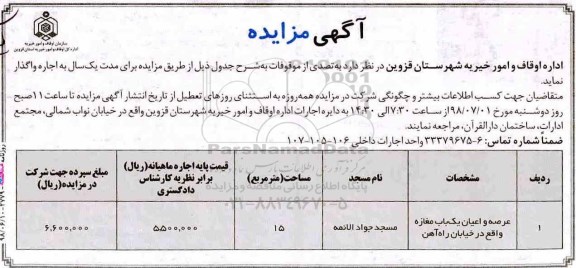 آگهی مزایده
سازمان اوقاف و امور خیریه
اداره کل اوقاف و امور خیریه استان قزوین
اداره اوقاف و امور خیریه شهرستان قزوین در نظر دارد به تصدی از موقوفات به شرح جدول ذیل از طریق مزایده برای مدت یک‌سال به اجاره واگذار
نماید.
متقاضیان جهت کسب اطلاعات بیشتر و چگونگی شرکت در مزایده همه‌روزه به استثنای روزهای تعطیل از تاریخ انتشار آگهی مزایده تا ساعت ۱۱ صبح
روز دوشنبه مورخ ۹۸/۰۷/۰۱ از ساعت ۷:۳۰ الی ۱۴:۳۰ به دایره اجارات اداره اوقاف و امور خیریه شهرستان قزوین واقع در خیابان نواب شمالی، مجتمع
ادارات، ساختمان دارالقرآن، مراجعه نمایند.
ضمناً شماره تماس: ۶-۳۳۳۷۹۶۷۵ واحد اجارات داخلی ۱۰۶-۱۰۵-۱۰۷
ردیف
مشخصات
نام مسجد
مساحت (مترمربع)
قیمت پایه اجاره ماهیانه (ریال)
برابر نظریه کارشناس
دادگستری
مبلغ سپرده جهت شرکت
در مزایده (ریال)
۱
عرصه و اعیان یک‌باب مغازه
واقع در خیابان راه‌آهن
مسجد جواد الائمه
۱۵
۵۵۰۰,۰۰۰
۶,۶۰۰,۰۰۰
ParsNamadData
۰۲۱-۸۸۳۴۹۶۷۰-۵